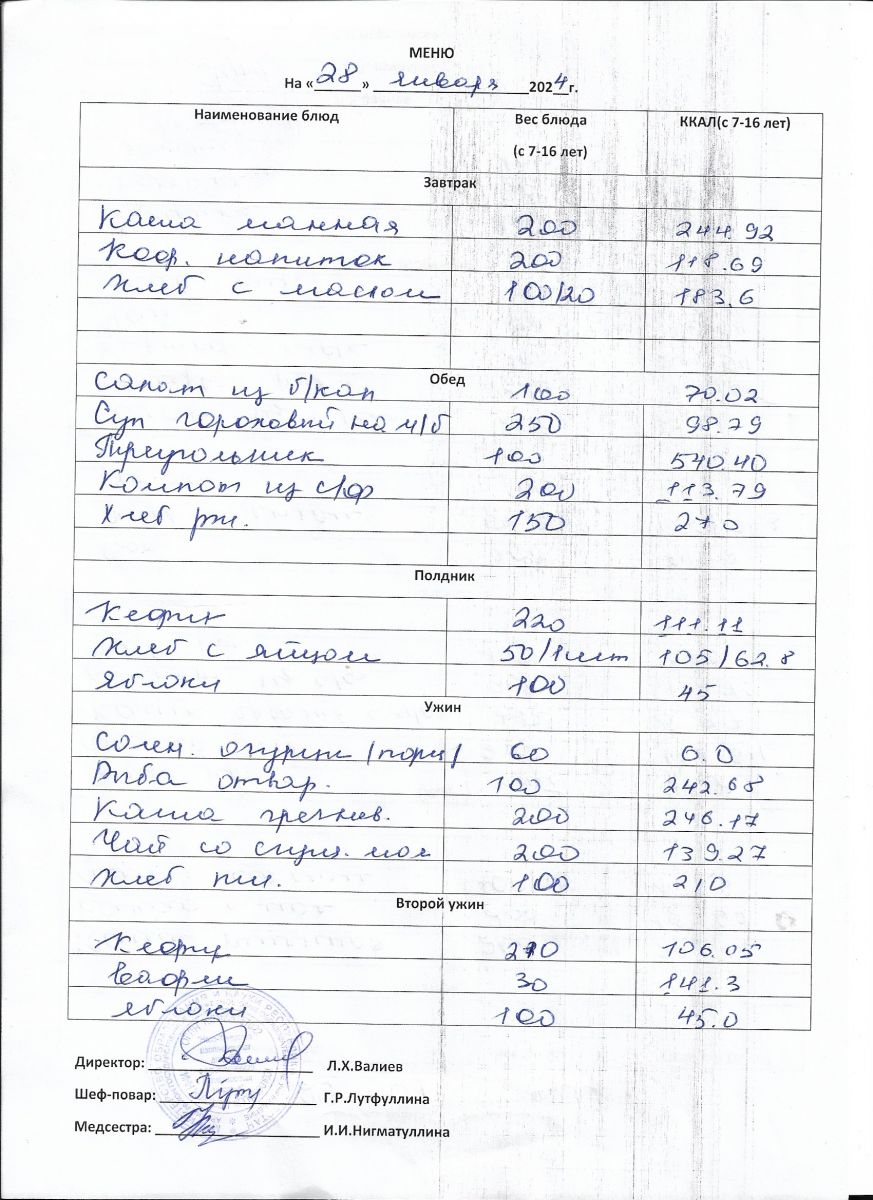 МЕНЮ
На «28» января 2024г.
Наименование блюд Вес блюда (с 7-16 лет) ККАЛ(с 7-16 лет)
Завтрак
Каша манная 200 244.92
Коф. напиток 200 118.69
Хлеб с маслом 100/20 183.6
Обед
Салат из б/кап 100 70.02
Суп гороховый на м/б 250 98.79
Треугольник 100 540.40
Компот из с/ф 200 113.79
Хлеб рж. 150 270
Полдник
Кефир 220 111.11
Хлеб с яйцом 50/1шт 105/62.8
Яблоки 100 45
Ужин
Солен. огурцы /порц/ 60 6.0
Рыба отвар. 100 242.68
Каша гречнев. 200 246.17
Чай со сгущ. мол 200 139.27
Хлеб пш. 100 210
Второй ужин
Кефир 210 106.05
Вафли 30 141.3
яблоки 100 45.0
Директор: Л.Х.Валиев
Шеф-повар: Г.Р.Лутфуллина
Медсестра: И.И.Нигматуллина